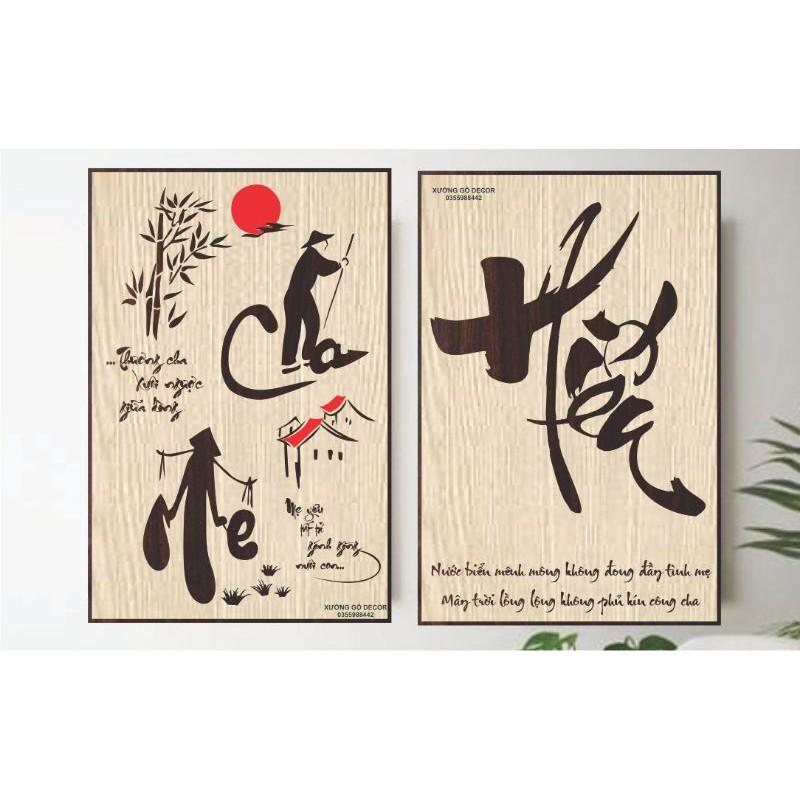 Cha
...Thương cha
xuôi ngược
giữa dòng
Mẹ
Mẹ yêu
tất tả
gánh gồng
nuôi con...
XƯỞNG GỖ DECOR
0355988442
XƯỞNG GỖ DECOR
0355988442
Hiếu
Nước biển mênh mông không đong đầy tình mẹ
Mây trời lồng lộng không phủ kín công cha